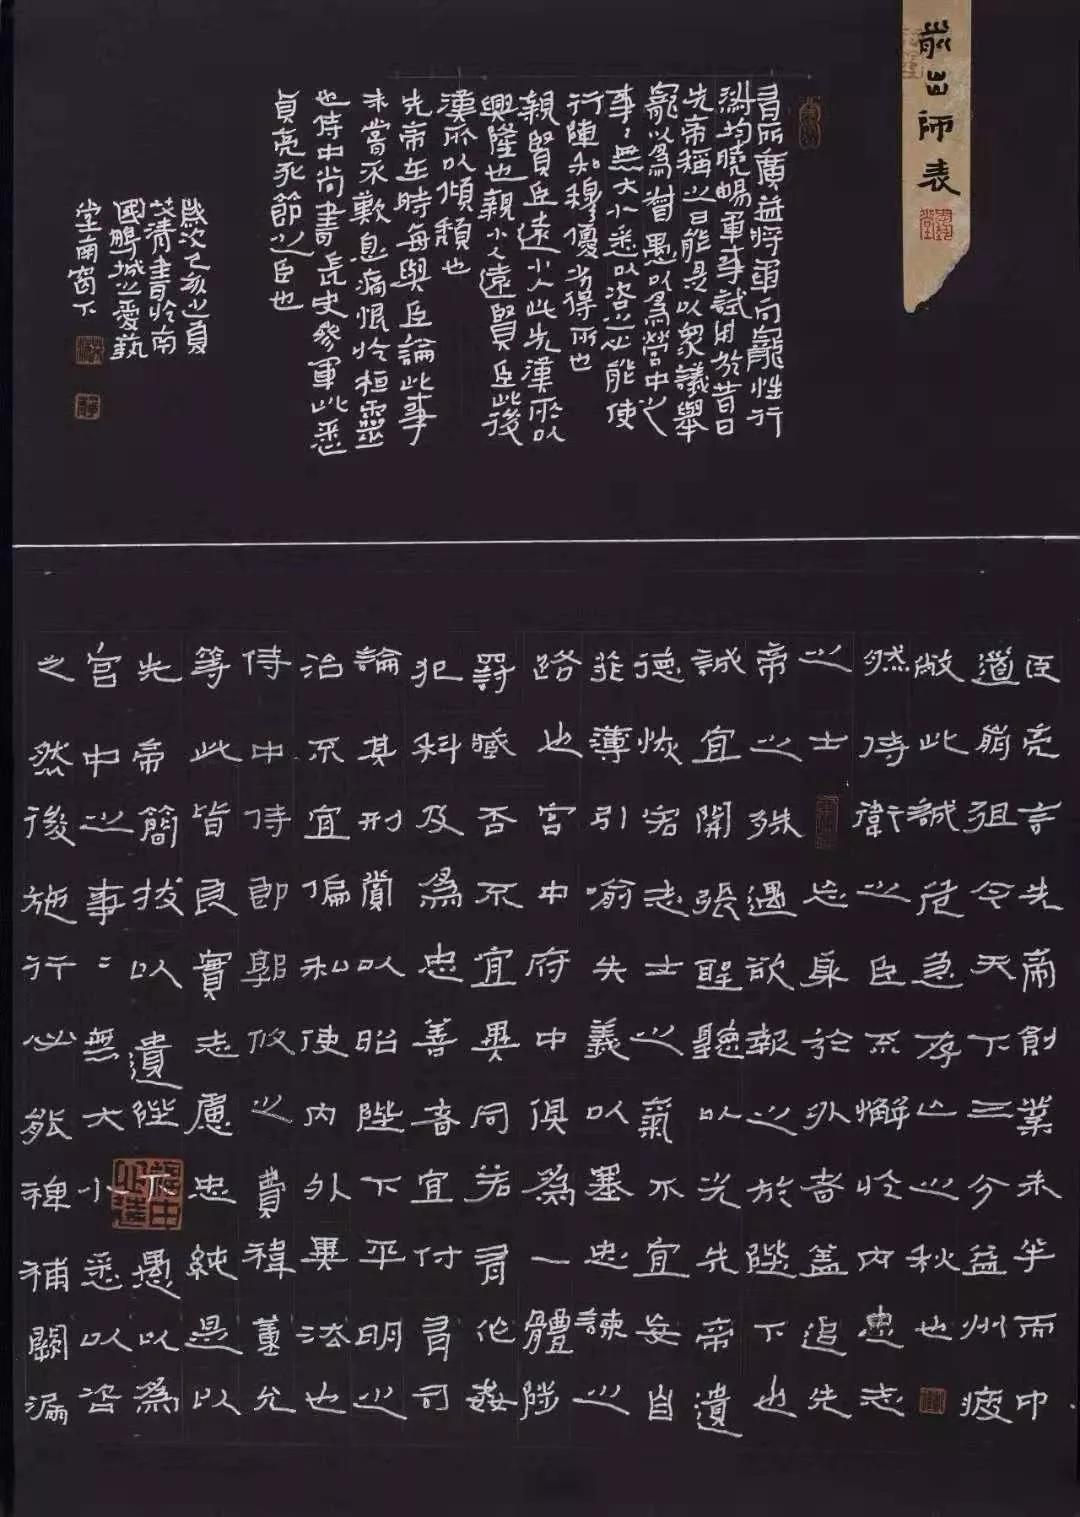 前出師表
臣亮言先帝創業未半而中
道崩殂今天下三分益州疲
敝此誠危急存亡之秋也
然侍衛之臣不懈於內忠志
之士忘身於外者蓋追先
帝之殊遇欲報之於陛下也
誠宜開張聖聽以光先帝遺
德恢宏志士之氣不宜妄自
菲薄引喻失義以塞忠諫之
路也宮中府中俱為一體陟
罰臧否不宜異同若有作姦
犯科及為忠善者宜付有司
論其刑賞以昭陛下平明之
治不宜偏私使內外異法也
侍中侍郎郭攸之費禕董允
等此皆良實志慮忠純是以
先帝簡拔以遺陛下愚以為
宮中之事〻無大小悉以咨
之然後施行必能裨補闕漏
有所廣益將軍向寵性行
淑均曉暢軍事試用於昔日
先帝稱之曰能是以眾議舉
寵以為督愚以為營中之
事〻無大小悉以咨之必能使
行陣和穆優劣得所也
親賢臣遠小人此先漢所以
興隆也親小人遠賢臣此後
漢所以傾頹也
先帝在時每與臣論此事
未嘗不歎息痛恨於桓靈
也侍中尚書長史參軍此悉
貞亮死節之臣也
歲次己亥之夏
艾清書於南
國鵬城之愛藝
堂南窗下